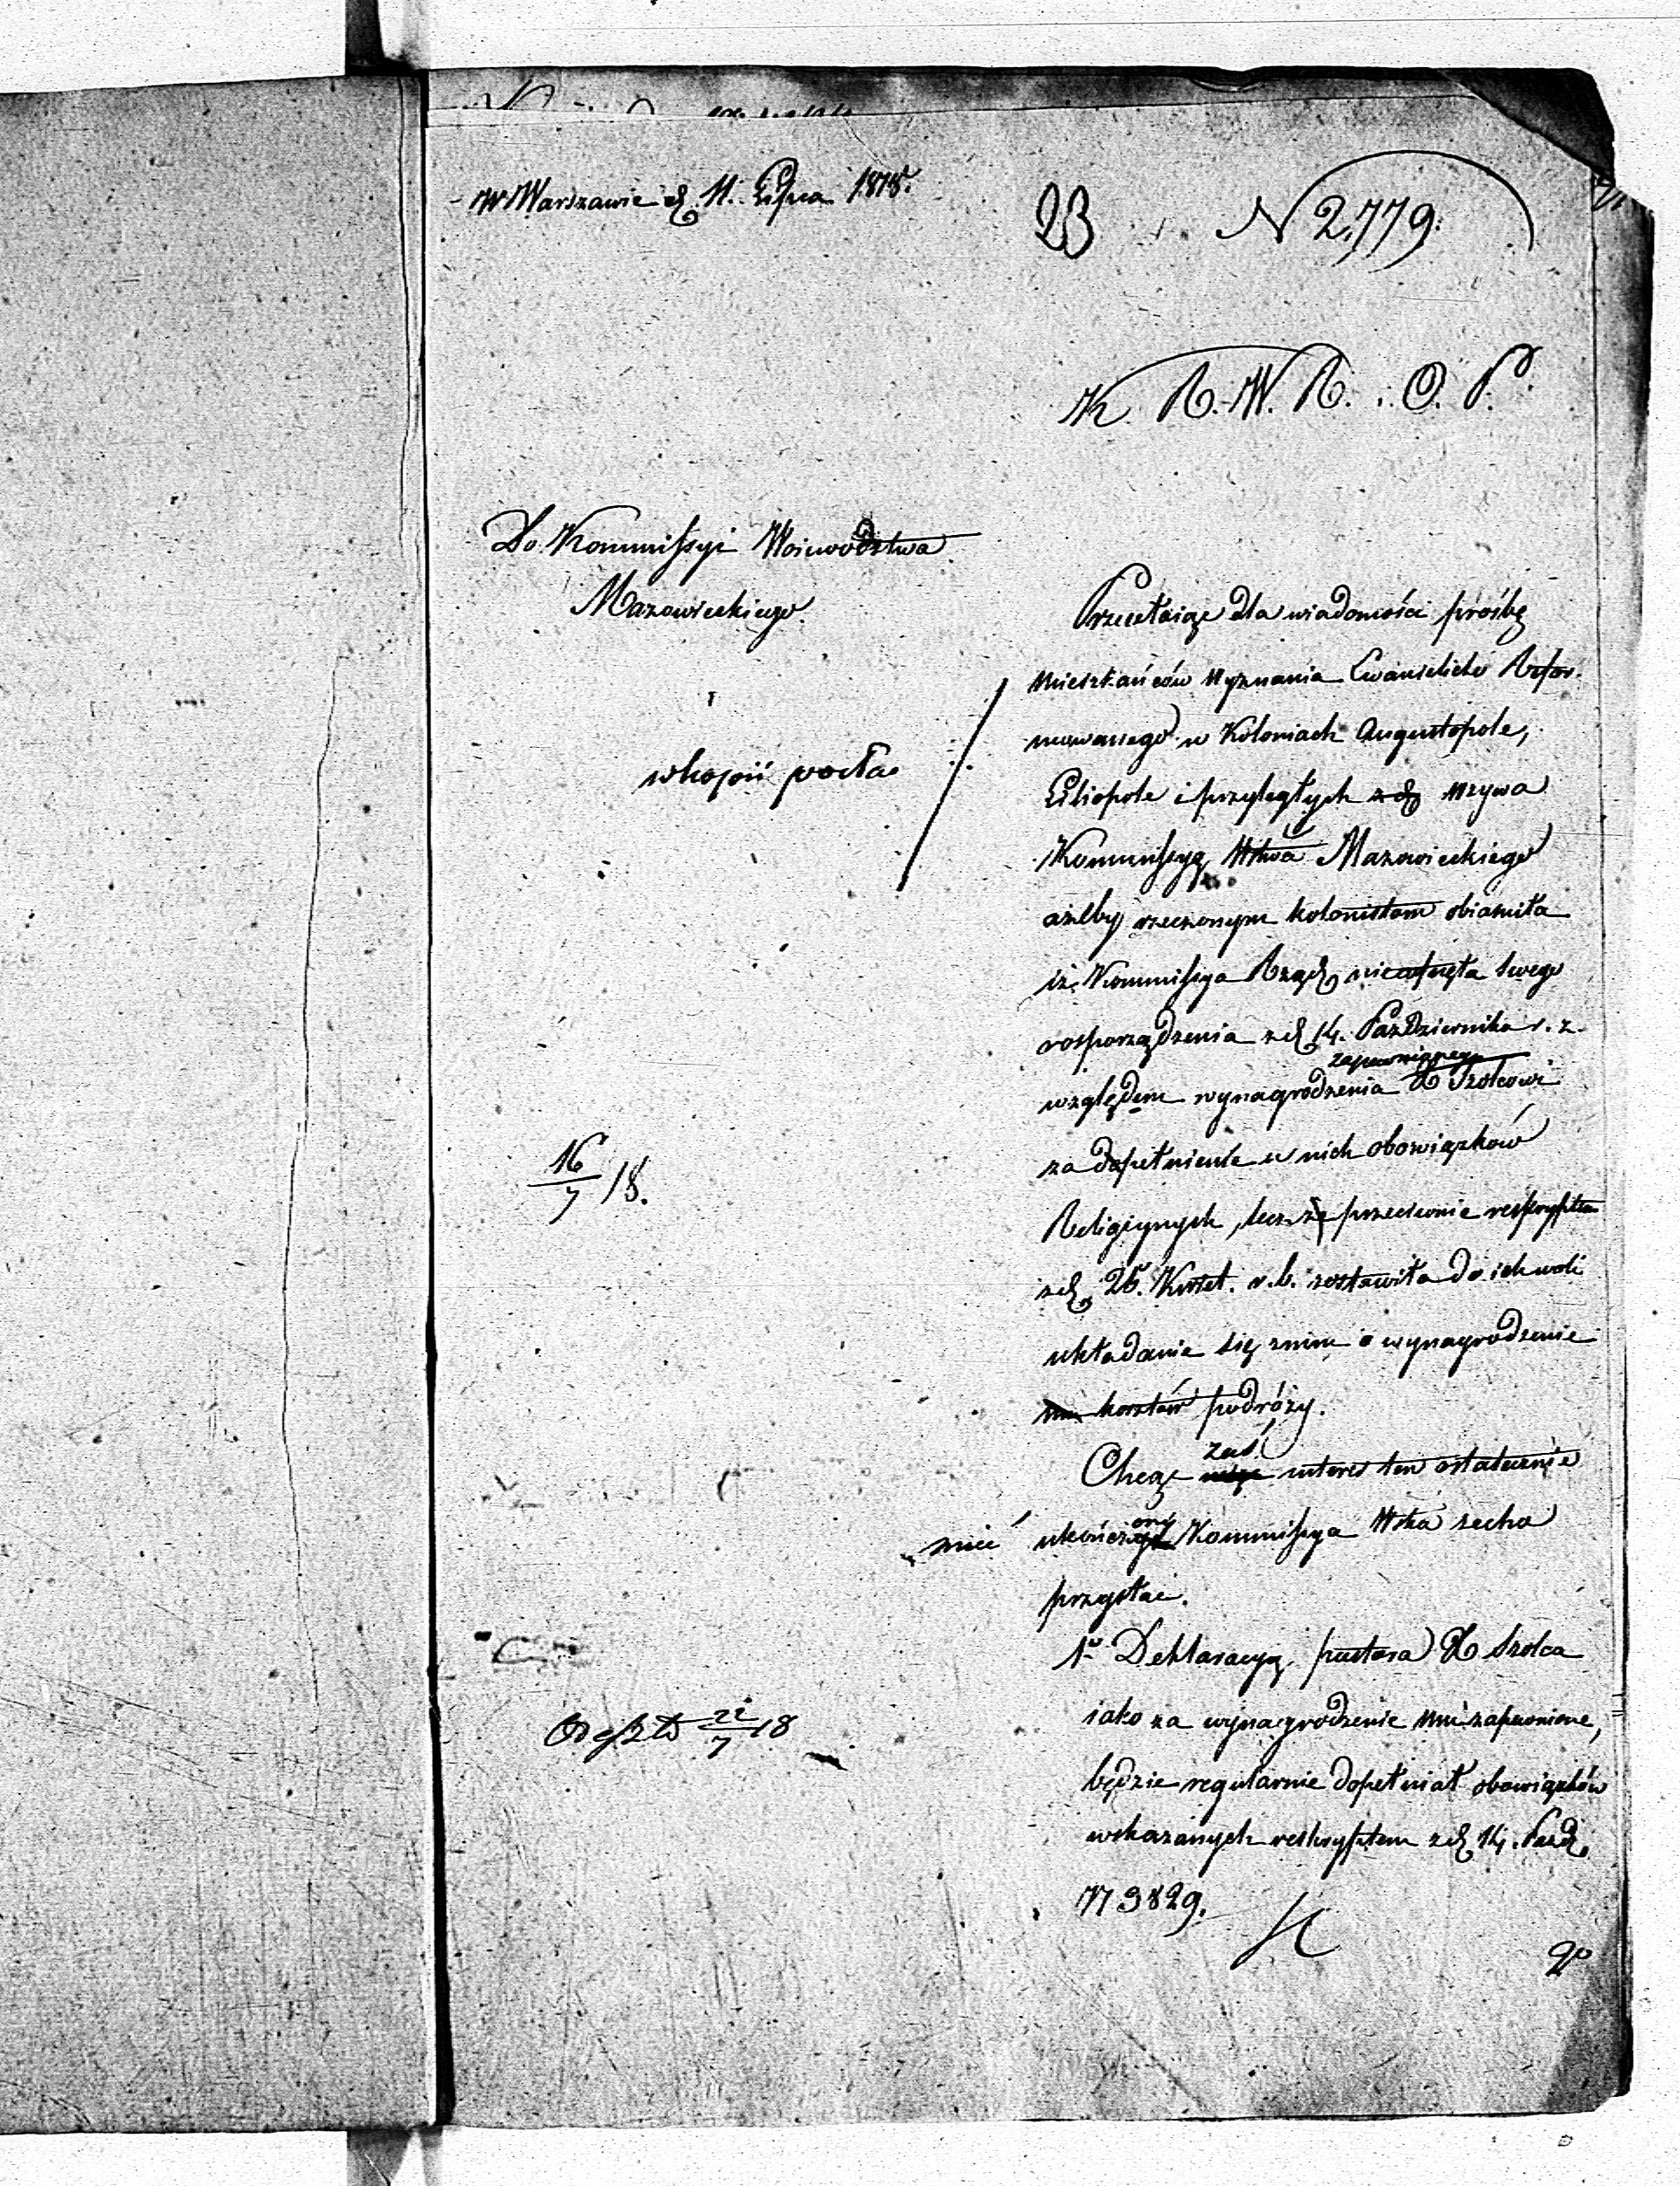 W Warszawie d. 11. Lipca 1818.
23 N 2,779.
K. R. W. R. i O. P.
Do Kommissyi Woiewodztwa
Mazowieckiego.
w kopii posłac
16/7 18.
22/7 18
Przesełaiąc dla wiadomości prośbę
mieszkańców wyznania Ewanielicko Refor-
mowanego w Koloniach Augustopole,
Liliopole i przyległych wzywa
Kommissyą Wtwa Mazowieckiego
ażeby rzeczonym kolonistom obiaśniła
iż Kommissya Rząd. nie cofnęła swego
rosporządzenia z d. 14. Października r. z.
zapewnionego
względem wynagrodzenia X Szolcowi
za dopełnienie u nich obowiązków
Religiynych, lecz że przeciwnie reskryptem
z d. 25. Kwiet. r. b. zostawiła do ich woli
układanie się z nim o wynagrodzenie
kosztów podróży.
zaś
Chcąc interes ten ostatecznie
mieć ukończony Kommissya Wtka zechce
przysłać.
1o Deklaracyą pastora X Szolca
iako za wynagrodzenie mu zapewnione,
będzie regularnie dopełniał obowiązków
wskazanych reskryptem z d. 14. Paźdz.
N 3829.
2o